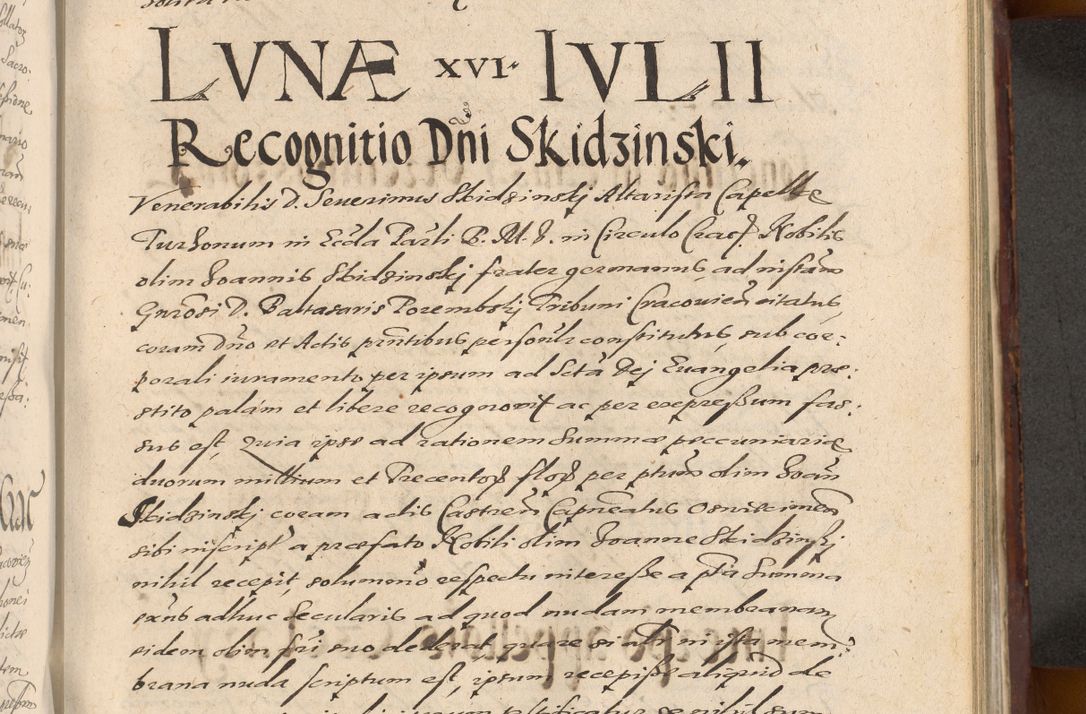 LVNÆ XVI. IVLII
Recognitio Dni Skidzinski.
Venerabilis D. Seuerinus Skidzinskj Altarista Capellę
Turzonum in Eccla Parli B. M. V. in Circulo Crac. Nobilis
olim Joannis Skidzinskj frater germanus, ad nistam
Gnrosi D. Baltasaris Porembskj Tribuni Cracouien citatus,
coram Dno et Actis pntibus personlr constitutus sub cor:
porali iuramento per ipsum ad Scta Dej Euangelia præ:
stito palam et libere recognovit ac per expressum fas:
sus est, Quia ipse ad rationem summæ peccuniariæ
duorum millium et Trecentor flor per ptum olim Joan
Skidzinskj coram actis Castren Capneatus Osuiecimen
sibi inscript a præfato Nobili olim Joanne Skidzinskj
nihil recepit, solummo respectu interesse a pta Summa
exns adhuc Secularis ad quod nudam membranam
eidem olim fri suo dederat, quare si in ista mem:
brana nuda scriptum est, ipsum recepisse aliquid de